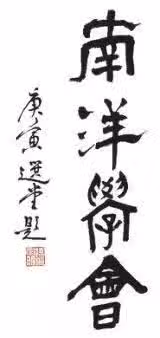 南洋學會
庚寅選堂題